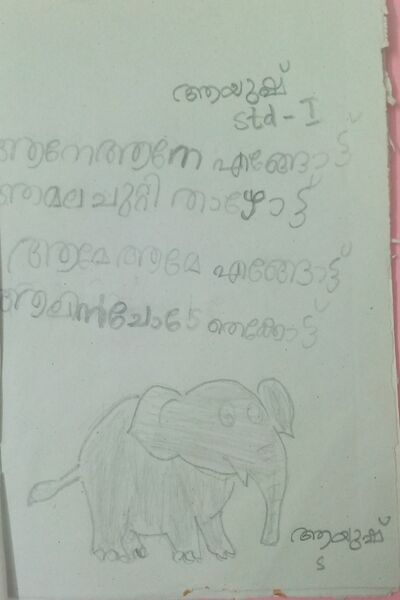 ആയുഷ്
std - I
ആനേആനേ എങ്ങോട്ട്
ആമല ചുറ്റി താഴോട്ട്
ആമേ ആമേ എങ്ങോട്ട്
തെക്കോട്ട്
ആയുഷ്
s